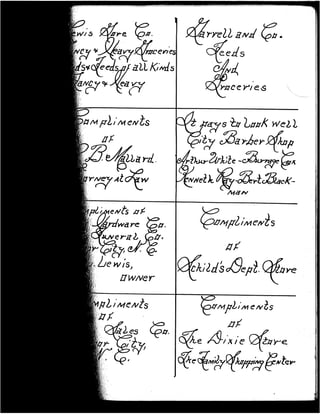 Store Co.
Heavy Groceries
Feeds of all Kinds
Fancy & Heavy
Harrell and Co.
Feeds
And
Groceries
Compliments
of
B. Mallard
Attorney At Law
It pays to look well
City Barber Shop
Arthur White - Burnge Cox
Kenneth Ray - Bert Black-
man
Compliments of
Hardware Co.
Funeral Co.
City, N. C.
Lewis,
Owner
Compliments
of
Schild's Dept. Store
Compliments
of
Sales Co.
City,
N. C.
Compliments
of
The Dixie Store
The Family Shopping Center